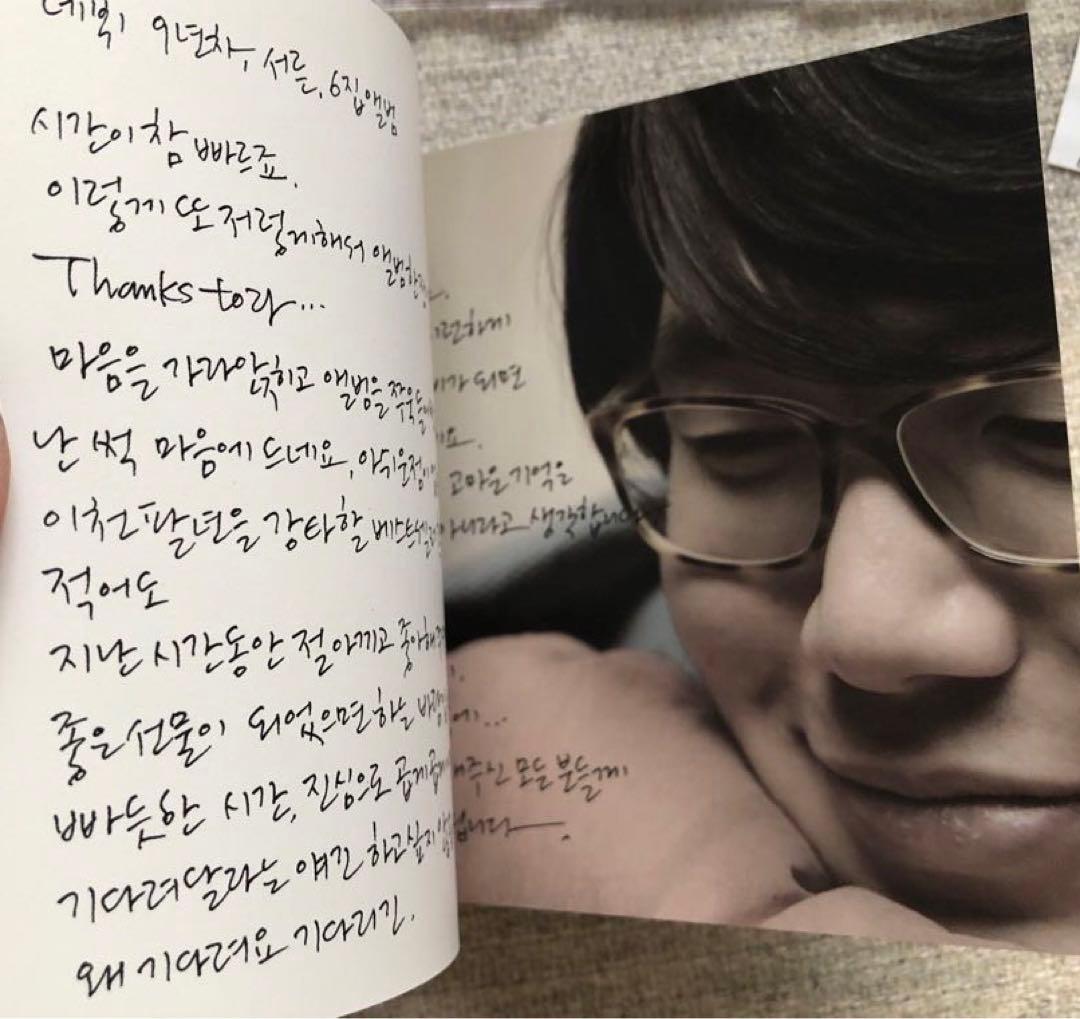 데뷔 9년차, 서른, 6집앨범
시간이 참 빠르죠.
이렇게 또 저렇게해서 앨범한
Thanks to라...
마음을 가라앉히고 앨범을 쭈욱들
난 썩 마음에 드네요, 아쉬운점이
이천팔년을 강타할 베스트셀러
적어도
지난 시간동안 절 아끼고 좋아해
좋은 선물이 되었으면 하는 바람
빠듯한 시간, 진심으로 곱게곱게
기다려달라는 얘긴 하고싶지
왜 기다려요 기다리긴.
되면
고마운 기억을
아니라고 생각합니다
에...
주신 모든 분들께